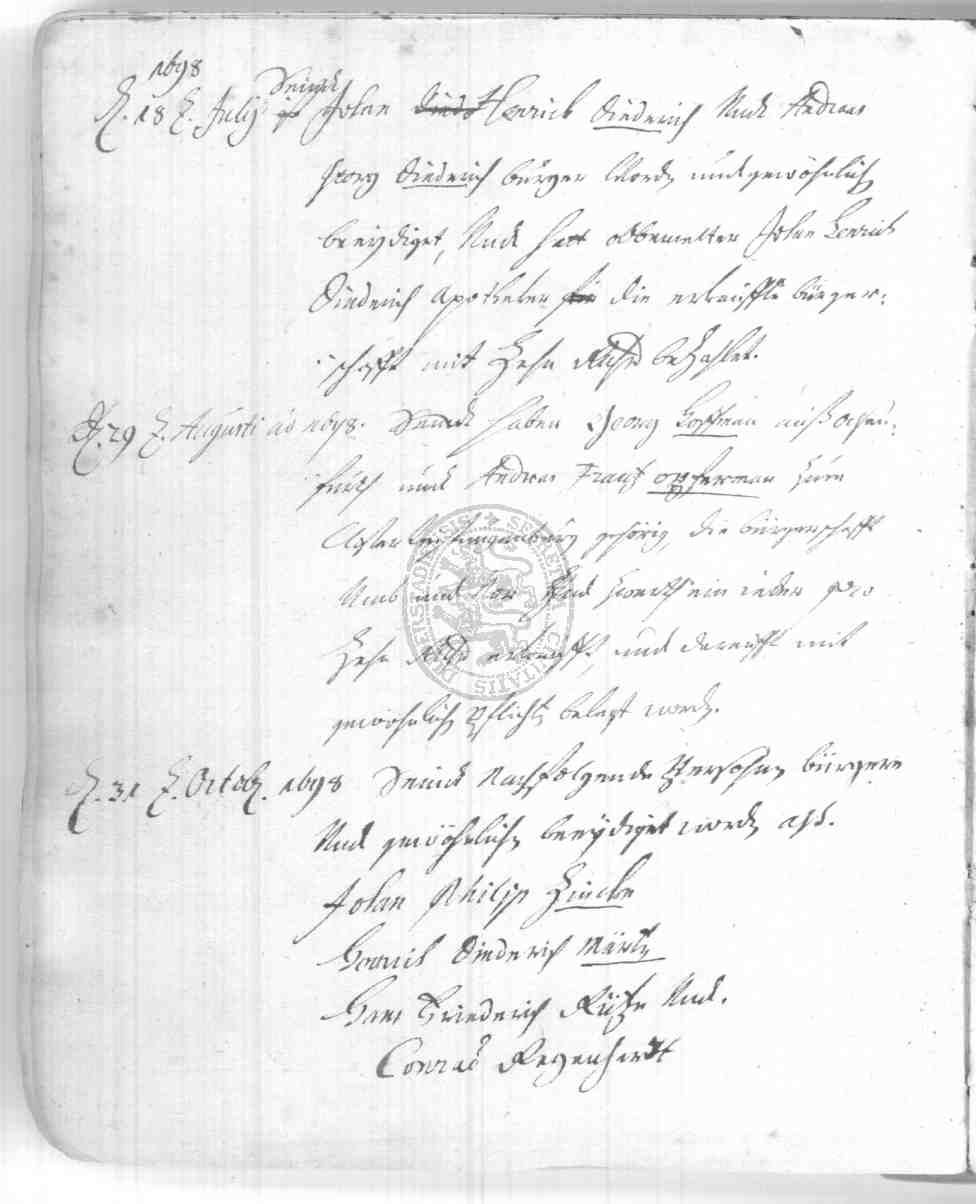 1698
D. 18 t. Julij ist Seind Johan Died Henrich Diederich Und Andreas
Georg Diederich bürger Worden und gewöhnlich
beeydiget, Und hatt obbemelter Johan Henrich
Diederich Apotheker für die erkauffte bürger-
schafft mit Zehn Rthlr bezahlet.
D. 29 t. Augusti ao 1698. Seind haben Georg Hoffman
und Andreas Frantz Opferman zum
Closter gehörig, die bürgerschafft
Umb und Vor ein ieder pro
Zehn Rthlr erkaufft, und darauff mit
gewöhnlich Pflicht belegt worden.
D. 31 t. Octob. 1698 Seind Nachfolgende Persohnen bürgere
Und gewöhnlich beeydiget worden als.
Johan Philip Zincke
Henrich Diederich Märtn
Hans Friederich Und.
Conrad Regenhardt
SECRETUM CIVITATIS DUDERSTADENSIS